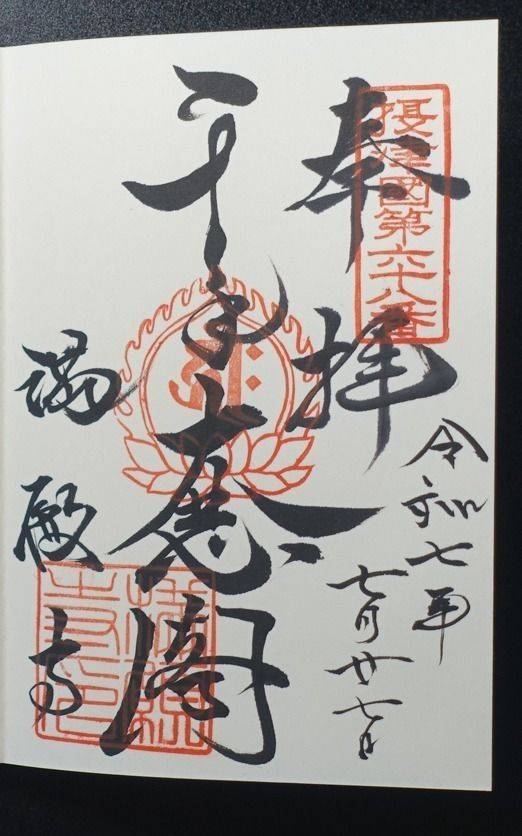 摂津國第六十八番
奉拝
令和七年
七月廿七日
千手大悲閣
満願寺